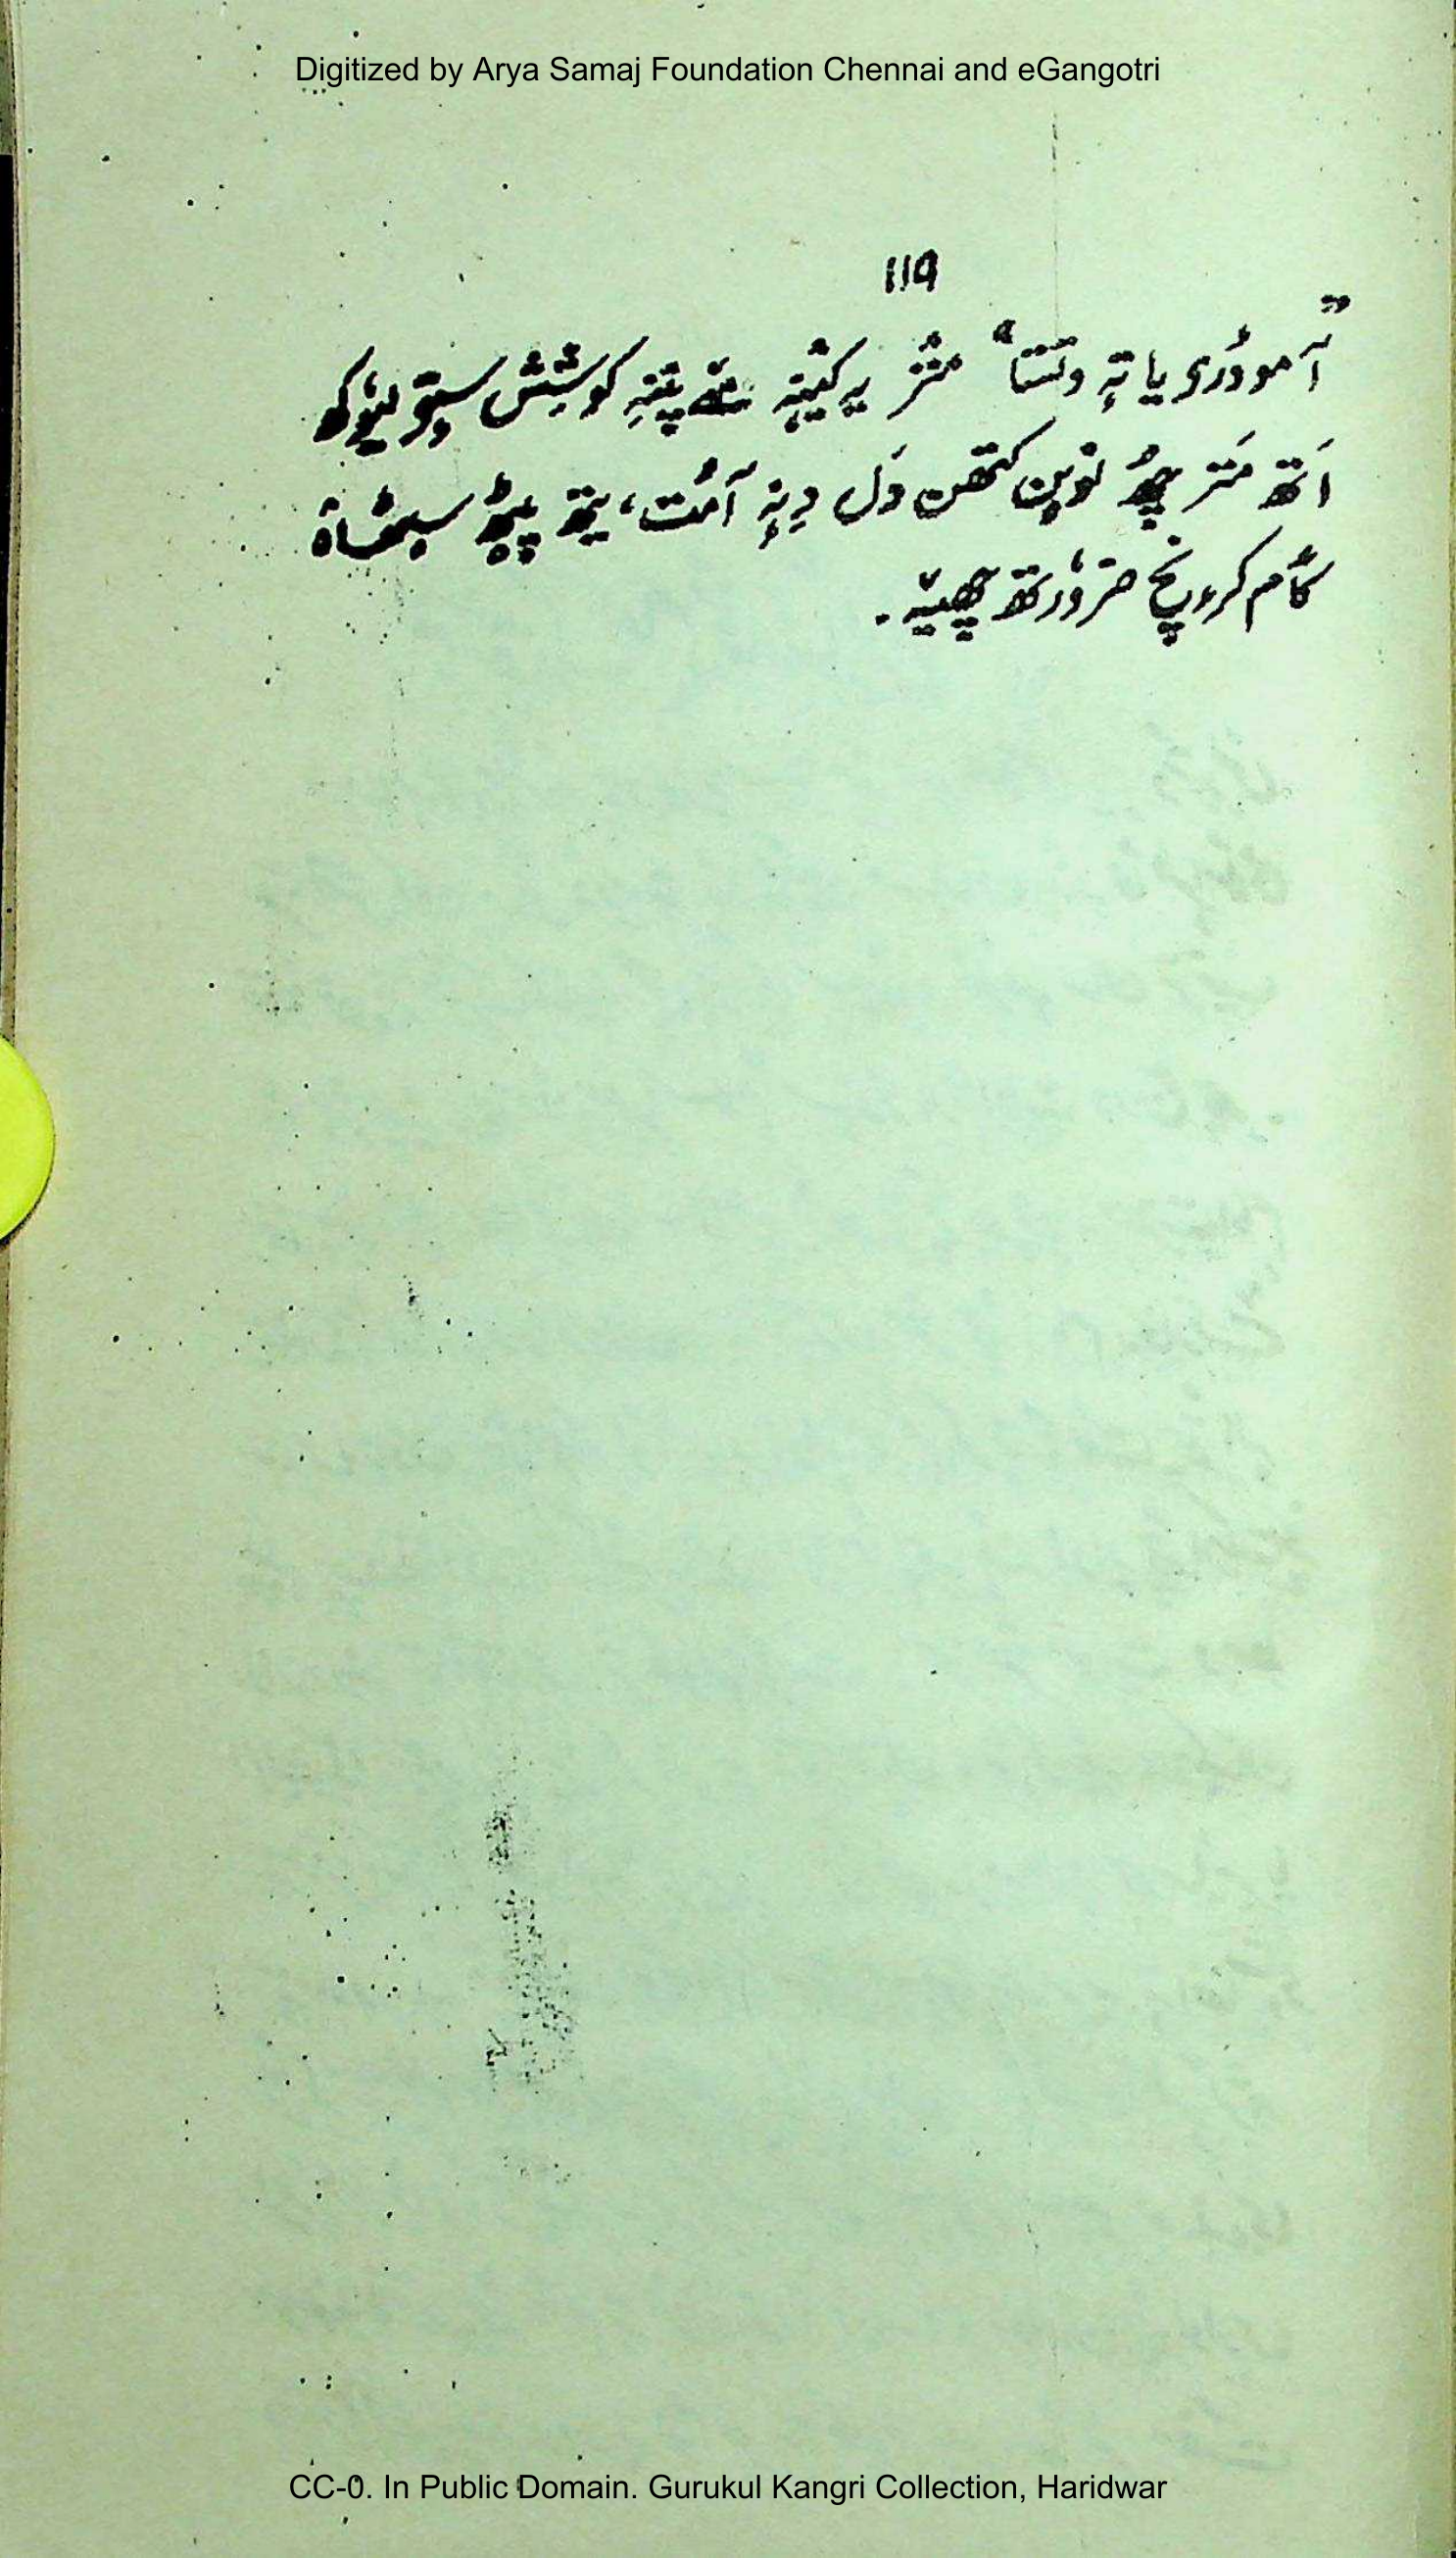 Digitized by Arya Samaj Foundation Chennai and eGangotri
119
”آمودٔری یا تہٕ وتستا“ منٛز کوشِش سٟتؠ
اَتھ منٛز چھُ نوٚین کتھن وَل دِنہٕ آمُت، یتھ پؠٹھ سؠٹھاہ
کٲم کرٕنچ ضرۆرتھ چھیہٕ۔
CC-0. In Public Domain. Gurukul Kangri Collection, Haridwar